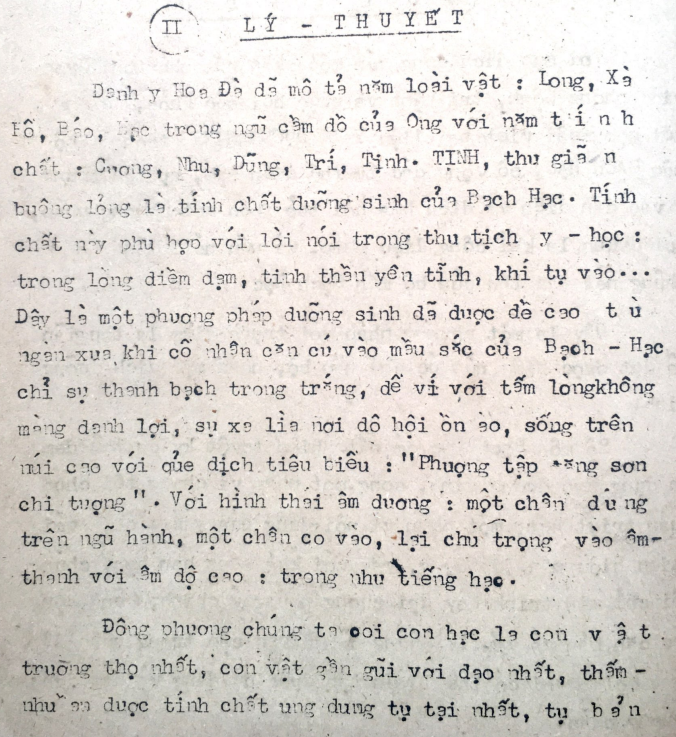 II LÝ - THUYẾT
Danh y Hoa Đà dã mô tả năm loài vật : Long, Xà
Hổ, Báo, Hạc trong ngũ cầm dồ của Ong với năm t í n h
chất : Cuơng, Nhu, Dũng, Trí, Tịnh. TINH, thu giã n
buông lỏng là tính chất duỡng sinh của Bạch Hạc. Tính
chất này phù họp với lời nói trong thu tịch y - học :
trong lòng diềm dạm, tinh thần yên tĩnh, khí tụ vào...
Dây là một phuơng pháp duỡng sinh dã duợc dề cao t ù
ngan xua khi cổ nhân căn cú vào mầu sắc của Bạch - Hạc
chỉ sụ thanh bạch trong trắng, dể ví với tấm longkhông
màng danh lợi, sụ xa lìa nơi dô hội ồn ào, sống trên
núi cao với quẻ dịch tiêu biểu : "Phuợng tập sơn
chi tuợng". Với hình thái âm duơng : một chân d u ng
trên ngũ hành, một chân co vào, lại chú trọng vào âm-
thanh với âm dộ cao : trong nhu tiếng hạc.
Đông phuơng chúng ta coi con hạc là con v ậ t
truờng thọ nhất, con vật gần gũi với dạo nhất, thấm-
duợc tính chất ung dung tụ tại nhất, tụ b ả n